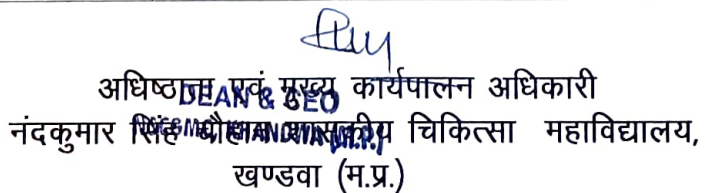 अधिष्ठाता एवं मुख्य कार्यपालन अधिकारी
DEAN & CEO
नंदकुमार सिंह चौहान शासकीय चिकित्सा महाविद्यालय,
खण्डवा (म.प्र.)